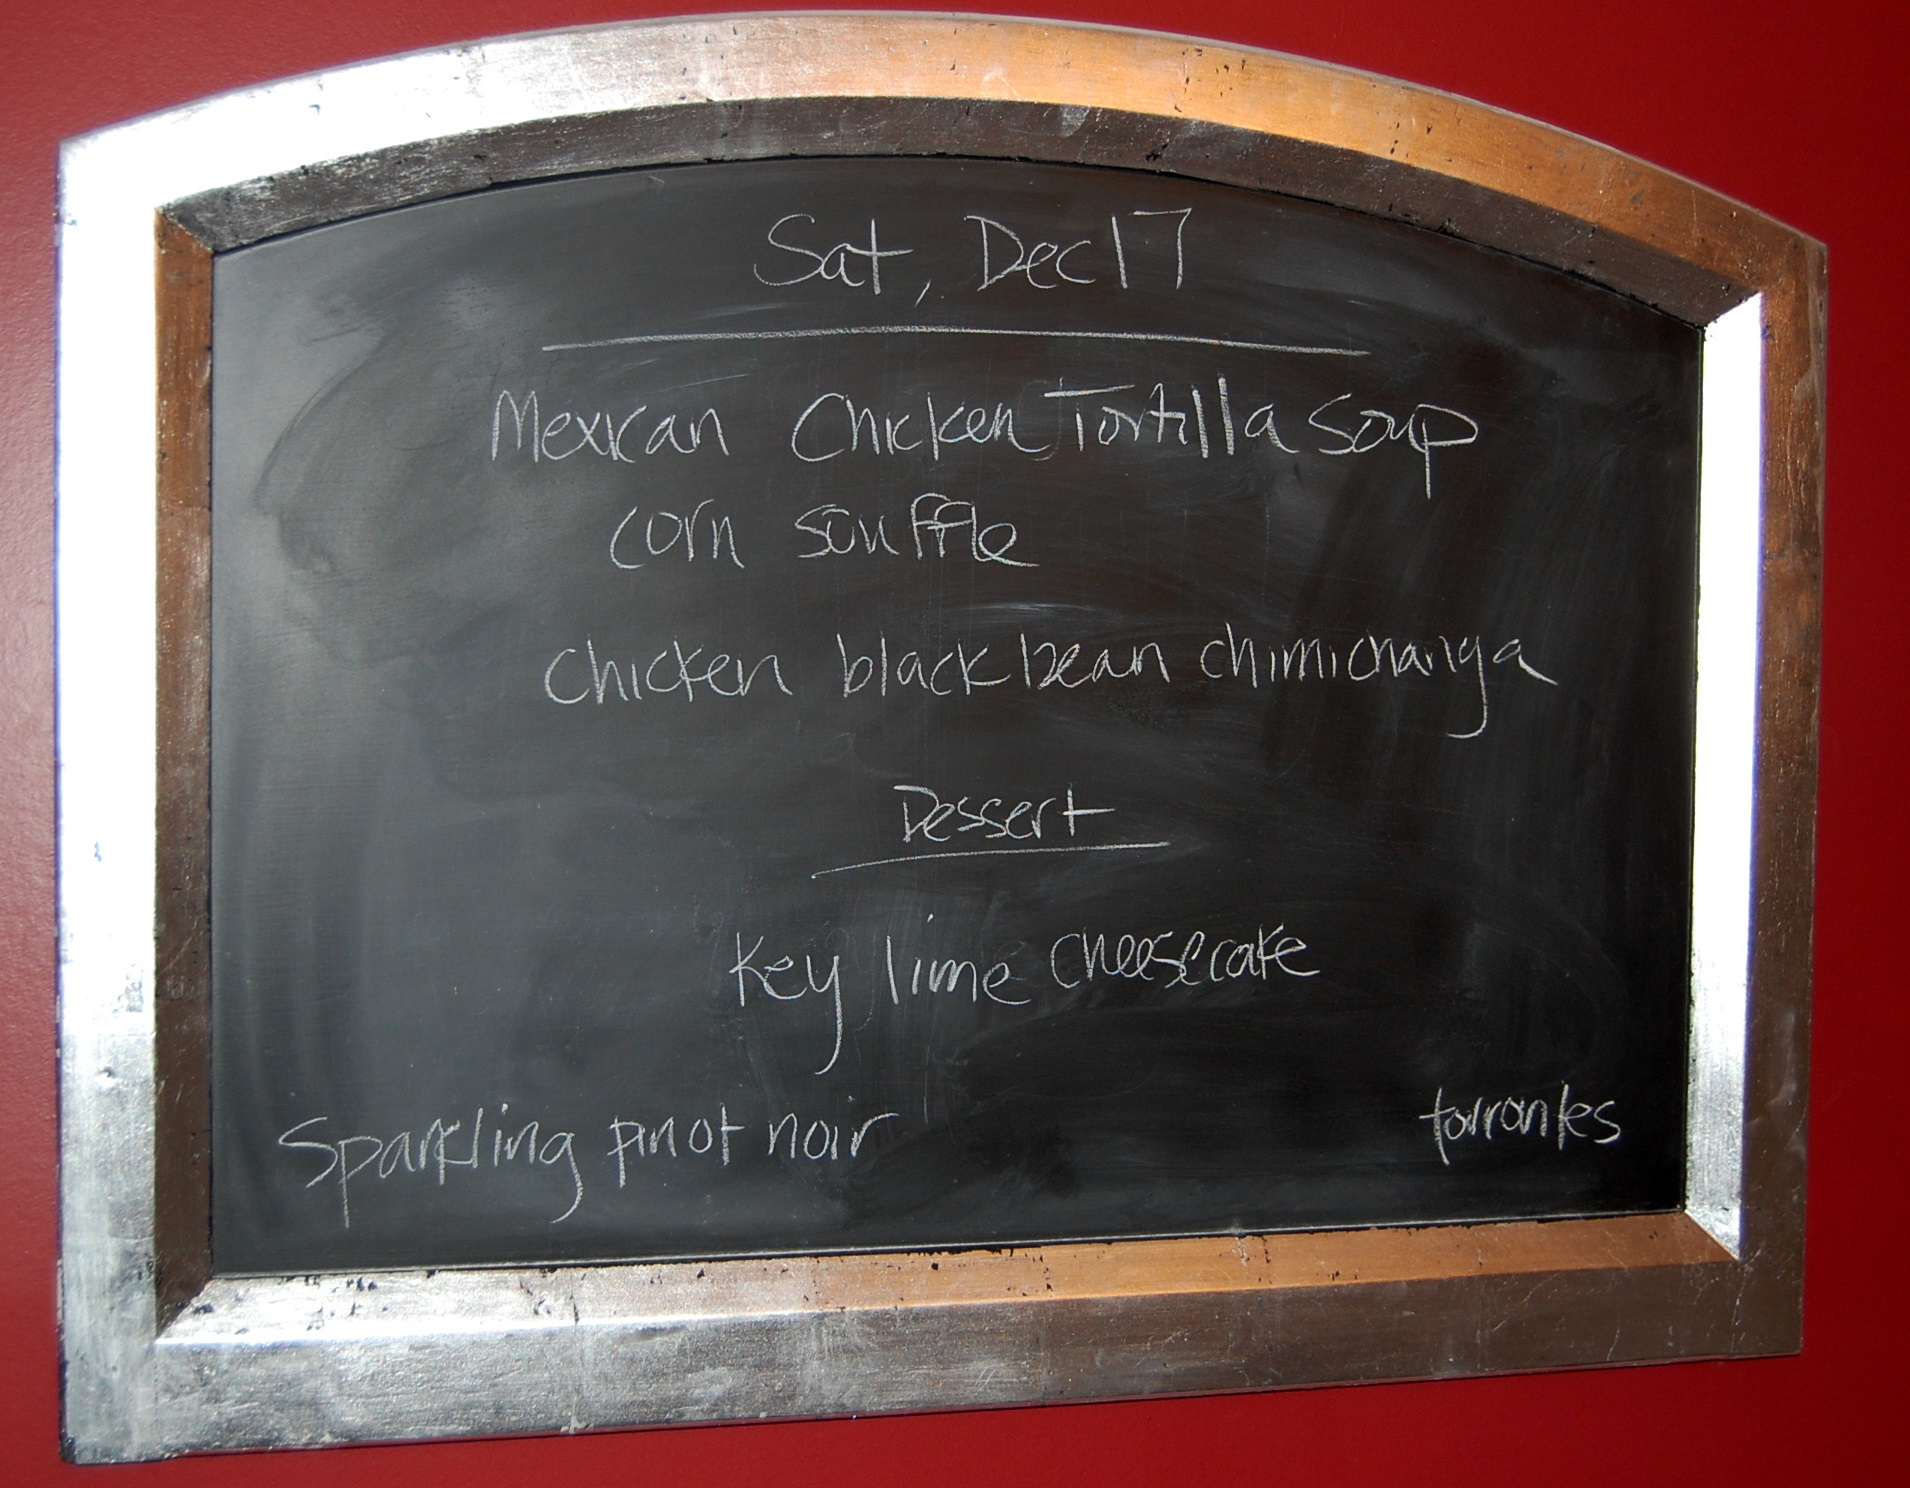 Sat, Dec 17
Mexican Chicken Tortilla soup
corn souffle
chicken black bean chimichanga
Dessert
Key lime cheesecake
Sparkling pinot noir
torrontes